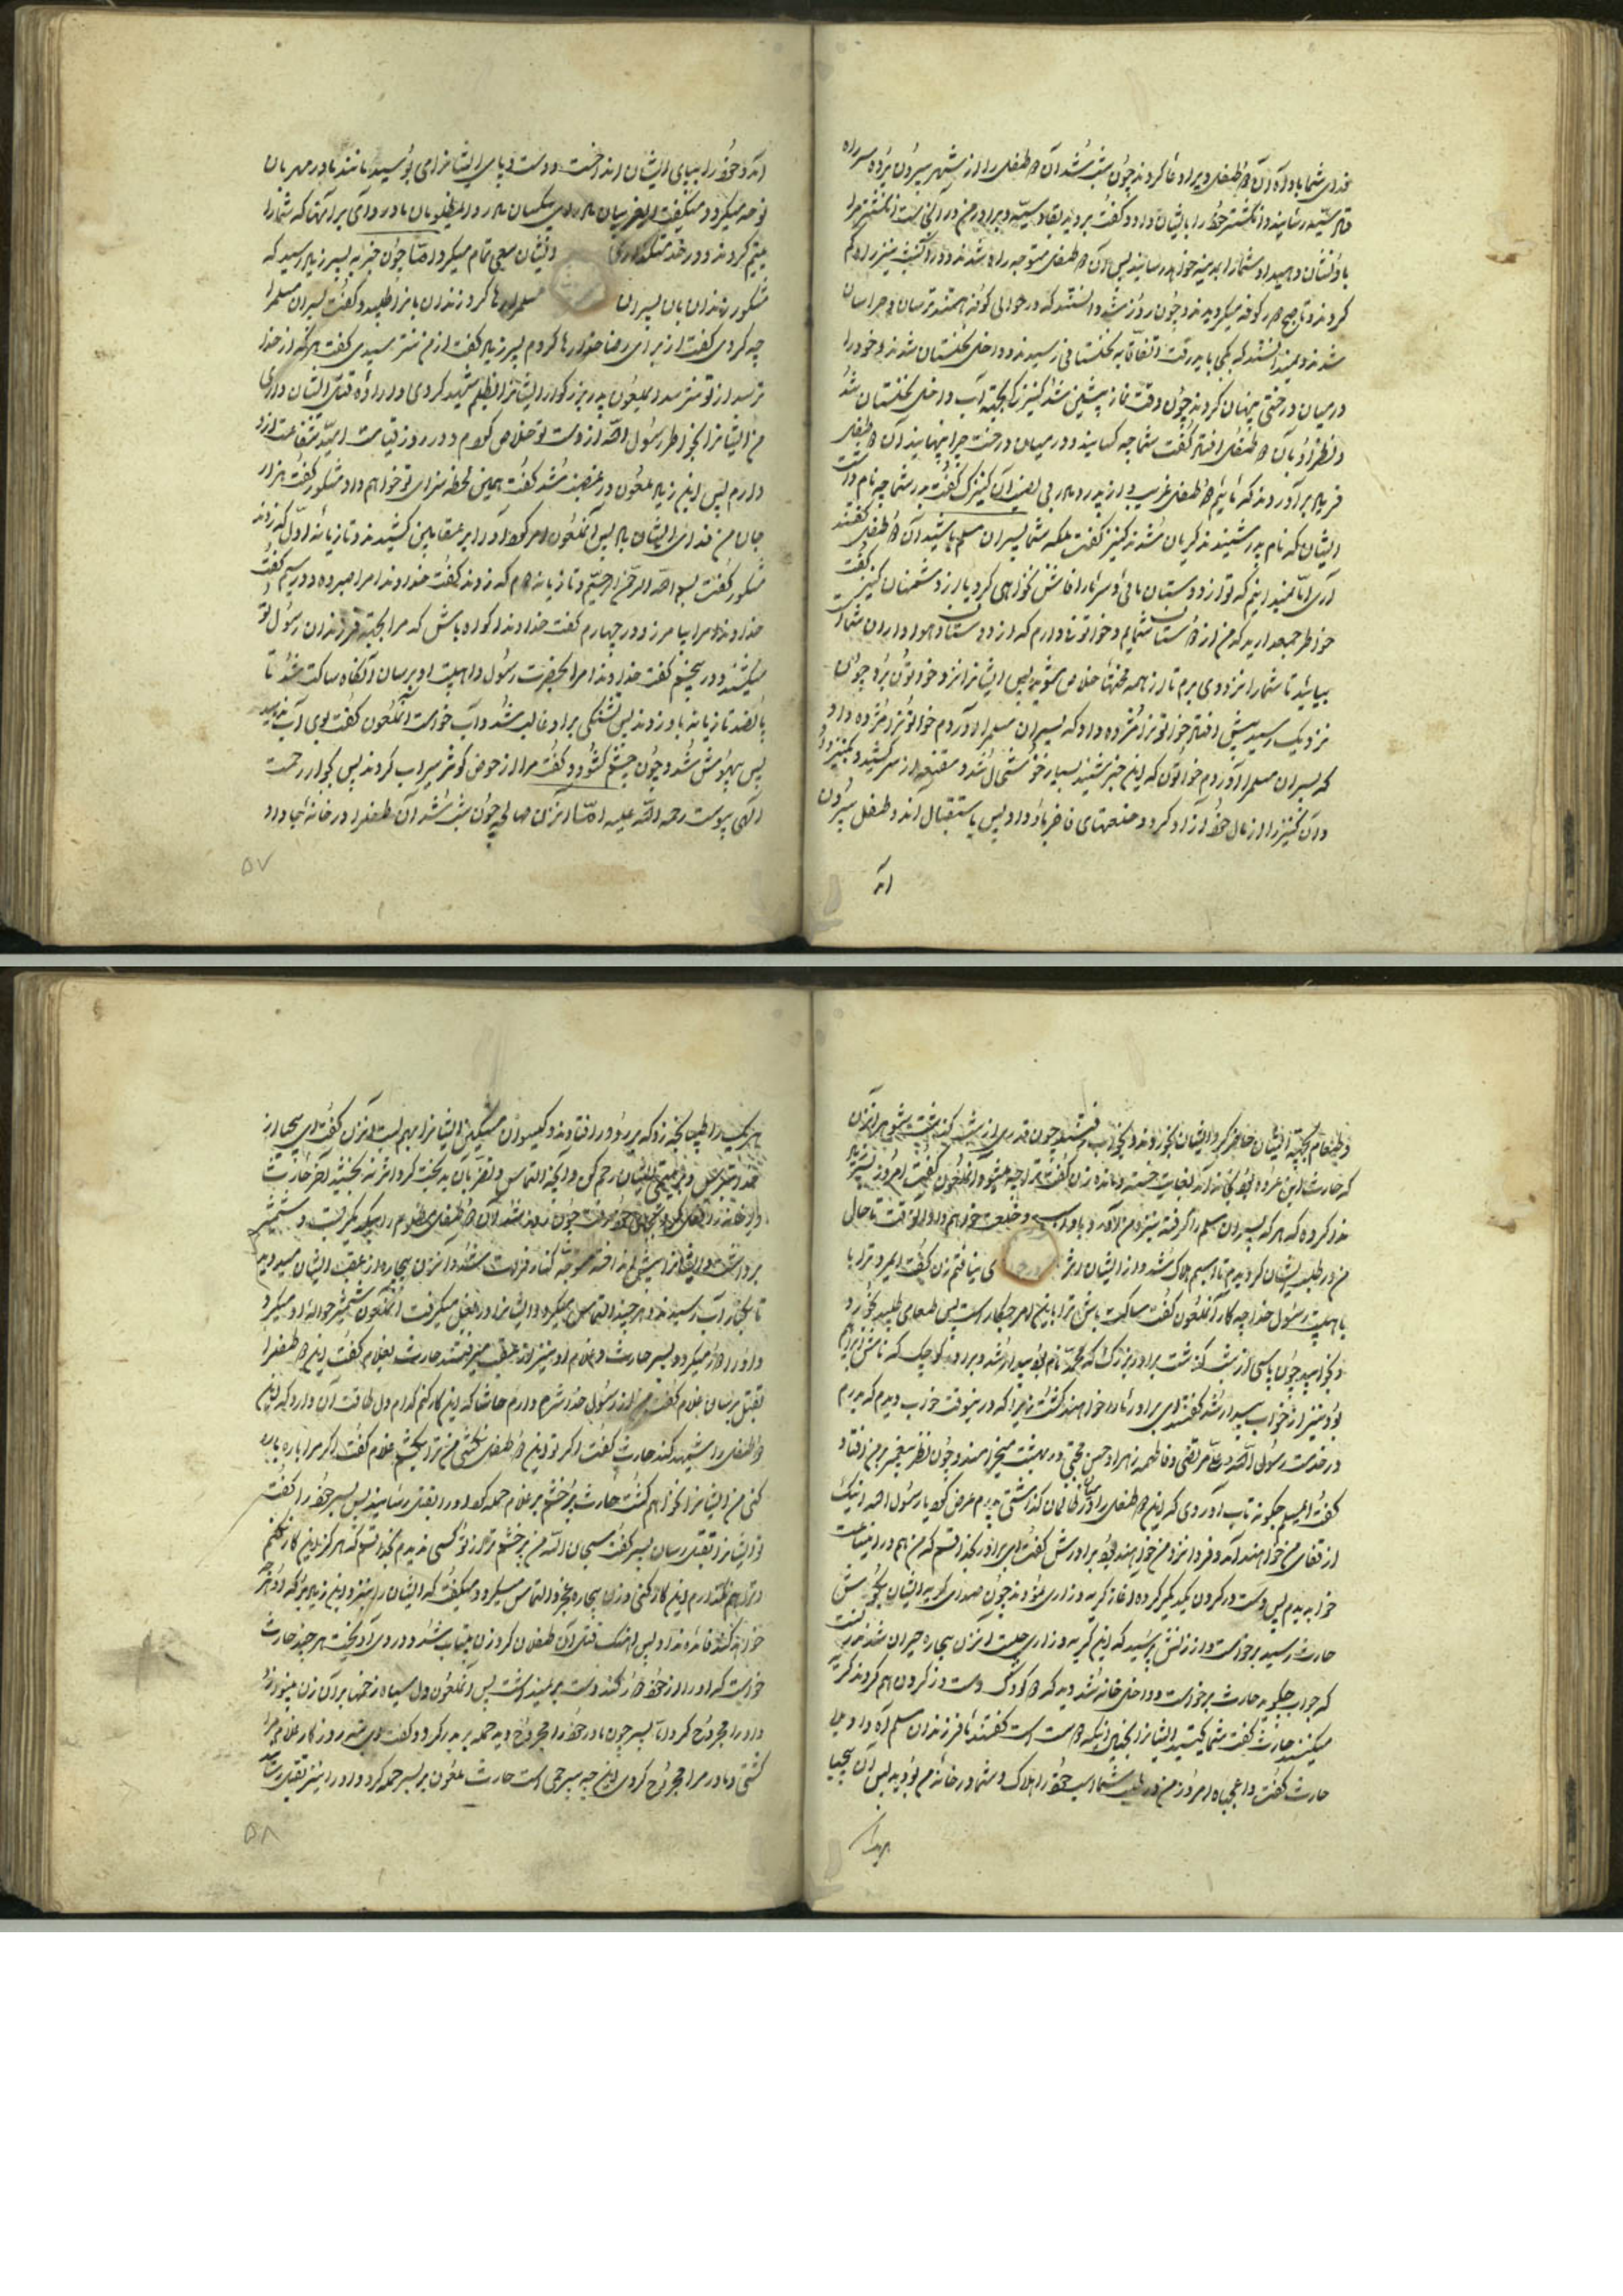 فدای شما باد آن طفلان ویرا دعا کردند چون شب شد آن طفلان را از شهر بیرون برده بر سر راه
قادسیه رسانید و انگشتر خود را بایشان داد و گفت بروید بقادسیه و برادر من در آنجاست انگشتر مرا
باو نشان دهید او شما را بمدینه خواهد رسانید پس آن طفلان متوجه راه شدند و در آن شب نیز راه گم
کردند و تا صبح در کوفه میگردیدند و چون روز شد دانستند که در حوالی کوفه هستند ترسان و هراسان
شدند و نمیدانستند که بکجا باید رفت اتفاقا به نخلستانی رسیدند و داخل نخلستان شدند و خود را
در میان درختی پنهان کردند چون وقت نماز پیشین شد کنیزک بجهة آب داخل نخلستان شد
و نظر او بآن طفلان افتاد گفت شما چه کسانید و در میان درخت چرا پنهانید آن طفلان
فریاد برآوردند که ما یتیم و طفلان غریب و از پدر دور آن کنیزک گفت پدر شما چه نام داشت
ایشان که نام پدر شنیدند گریان شدند کنیز گفت بلکه شما پسران مسلم باشید آن طفلان گفتند
آری اما نمیدانیم که تو از دوستان مائی و سر ما را فاش نخواهی کرد یا از دشمنان کنیز گفت
خاطر جمع دارید که من از دوستان شمایم و خاتونی دارم که از دوستان و هواداران شما است
بیائید تا شما را نزد وی برم تا از همه محنتها خلاص شوید پس ایشانرا نزد خاتون برد چون
نزدیک رسید پیش افتاد خاتونرا مژده داد که پسران مسلم را آوردم خاتونرا مژده داد
که پسران مسلم را آوردم خاتون که این خبر شنید بسیار خوشحال شد و مقنعه از سر کشید و بکنیز داد
و آن کنیز را از مال خود آزاد کرد و خلعتهای فاخر باو داد پس باستقبال آن دو طفل بیرون
آمد
آمد و خود را بپای ایشان انداخت و دست و پای ایشانرا می بوسید مانند مادر مهربان
نوحه میکرد و میگفت ای غریبان مادر ای بیکسان مادر و ای مظلومان مادر وای بر آنها که شما را
یتیم کردند و در خدمتکاری ایشان سعی تمام میکرد اما چون خبر به پسر زیاد رسید که
مشکور زندان بان پسران مسلم را رها کرد زندان بانرا طلبید و گفت پسران مسلم را
چه کردی گفت از برای رضا خدا رها کردم پسر زیاد گفت از من نترسیدی گفت هر که از خدا
ترسد از تو نترسد ای ملعون پدر بزرگوار ایشانرا بظلم شهید کردی و اراده قتل ایشان داری
من ایشانرا بخاطر رسول الله از دست تو خلاص کردم و در روز قیامت امید شفاعت از او
دارم پس ابن زیاد ملعون در غضب شد گفت همین لحظه سزای تو خواهم داد مشکور گفت هزار
جان من فدای ایشان باد پس آن ملعون امر کرد او را بر عقابین کشیدند و تازیانه اول که زدند
مشکور گفت بسم الله الرحمن الرحیم و تازیانه دوم که زدند گفت خداوندا مرا صبر ده و در سیم گفت
خداوندا مرا بیامرز و در چهارم گفت خداوندا گواه باش که مرا بجهة فرزندان رسول تو
میکشند و در پنجم گفت خداوندا مرا بحضرت رسول و اهلبیت او برسان آنگاه ساکت شد تا
پانصد تازیانه باو زدند پس تشنگی بر او غالب شد و آب خواست آن ملعون گفت بوی آب ندهید
پس بیهوش شد و چون چشم گشود و گفت مرا از حوض کوثر سیراب کردند پس بجوار رحمت
الهی پیوست رحمه الله علیه اما آن زن صالحه چون شب شد آن دو طفل را در خانه جا داد
۵۷
و طعام بجهة ایشان حاضر کرد ایشان بخوردند و بخواب رفتند چون قدری از شب گذشت شوهر آن زن
که حارث ابن عروه بود بخانه آمد بغایت خسته و مانده زن گفت ترا چه میشود آن ملعون گفت امروز پسر زیاد
ندا کرده که هر که پسران مسلم را گرفته بنزد من آورد باو اسب و خلعت خواهم داد از آن وقت تا حال
من در طلب ایشان گردیدم تا اسبم هلاک شد و از ایشان اثری نیافتم زن گفت ای مرد ترا با
با اهلبیت رسول خدا چه کار آن ملعون گفت ساکت باش ترا باین امر چکار است پس طعامی طلبید بخورد
و بخوابید چون پاسی از شب گذشت برادر بزرگ که محمد نام بود بیدار شد و برادر کوچک که نامش ابراهیم
بود نیز از خواب بیدار شد گفت ای برادر ما را خواهند کشت زیرا که در اینوقت خواب دیدم که پدرم
در خدمت رسول الله و علی مرتضی و فاطمه زهرا و حسن مجتبی در بهشت میخرامند و چون نظر پیغمبر بر من افتاد
گفت ای مسلم چگونه تاب آوردی که این دو طفل را در میان ظالمان گذاشتی پدرم عرض کرد یا رسول الله اینک
از قفای من خواهند آمد و فردا نزد من خواهند بود برادرش گفت ای برادر بخدا قسم که من هم در این ساعت
خواب دیدم پس دست در گردن یکدیگر کرده و آغاز گریه و زاری نمودند چون صدای گریه ایشان بگوش
حارث رسید برخواست و از زنش پرسید که این گریه و زاری چیست آن زن بیچاره حیران شد ندانست
که جواب چگوید حارث برخواست و داخل خانه شد دید که دو کودک دست در گردن هم کردند گریه
میکنند حارث گفت شما کیستید ایشان بخیال اینکه دوست است گفتند ما فرزندان مسلم آه و داویلا
حارث گفت واعجباه امروز من در طلب شما اسب خود را هلاک و شما در خانه من بودید پس آن بیحیا
هر یک را طپانچه زد که بر رو در افتادند و گیسوان مشکین ایشانرا بهم بست آن زن گفت ای بیحیا از
خدا بترس و بر یتیمی ایشان رحم کن و آنچه التماس و تضرع بآن بدبخت کرد اثر نه بخشید آخر حارث
در خانه را قفل کرد و بجای خود رفت چون روز شد آن دو طفلان مظلوم را بیکدیگر بست و شمشیر
برداشت و ایشانرا پیش انداخته متوجه کنار فرات شد و آن زن بیچاره از عقب ایشان میدوید
تا بکنار آب رسیدند و هر چند التماس میکرد و ایشانرا در بغل میگرفت آن ملعون شمشیر حواله او میکرد
و او را دور میکرد و پسر حارث و غلام او نیز از عقب میرفتند حارث بغلام گفت این دو طفل را
بقتل برسان غلام گفت من از رسول خدا شرم دارم حاشا که این کار کنم کدام دل طاقت آن دارد که این
دو طفل را شهید کند حارث گفت اگر تو این دو طفل نکشی من ترا میکشم غلام گفت اگر مرا پاره پاره
کنی من ایشانرا نخواهم کشت حارث بخشم بر غلام حمله کرد او را بقتل رسانید پس پسر خود را گفت
تو ایشانرا بقتل رسان پسر گفت سبحان الله من بی رحم تر از تو کسی ندیدم بخدا قسم که هرگز این کار نکنم
و ترا هم نگذارم این کار کنی و زن بیچاره عجز و التماس میکرد و میگفت که ایشان را بنزد ابن زیاد ببر که او هر چه
خواهد کند فائده نداد پس آهنگ قتل آن طفلان کرد زن بیتاب شد و در وی آویخت هر چند حارث
خواست که او را از خود دور کند دست بر نمیداشت پس آن ملعون دل سیاه زخمها بر آن زن میزد
و او را مجروح کرد اما پسر چون مادر خود را مجروح دید حمله بر پدر کرد و گفت ای تیره روزگار غلام مرا
کشتی و مادر مرا مجروح کردی این چه بیرحمی است حارث ملعون بر پسر حمله کرد و او را نیز بقتل رسانید
۵۸